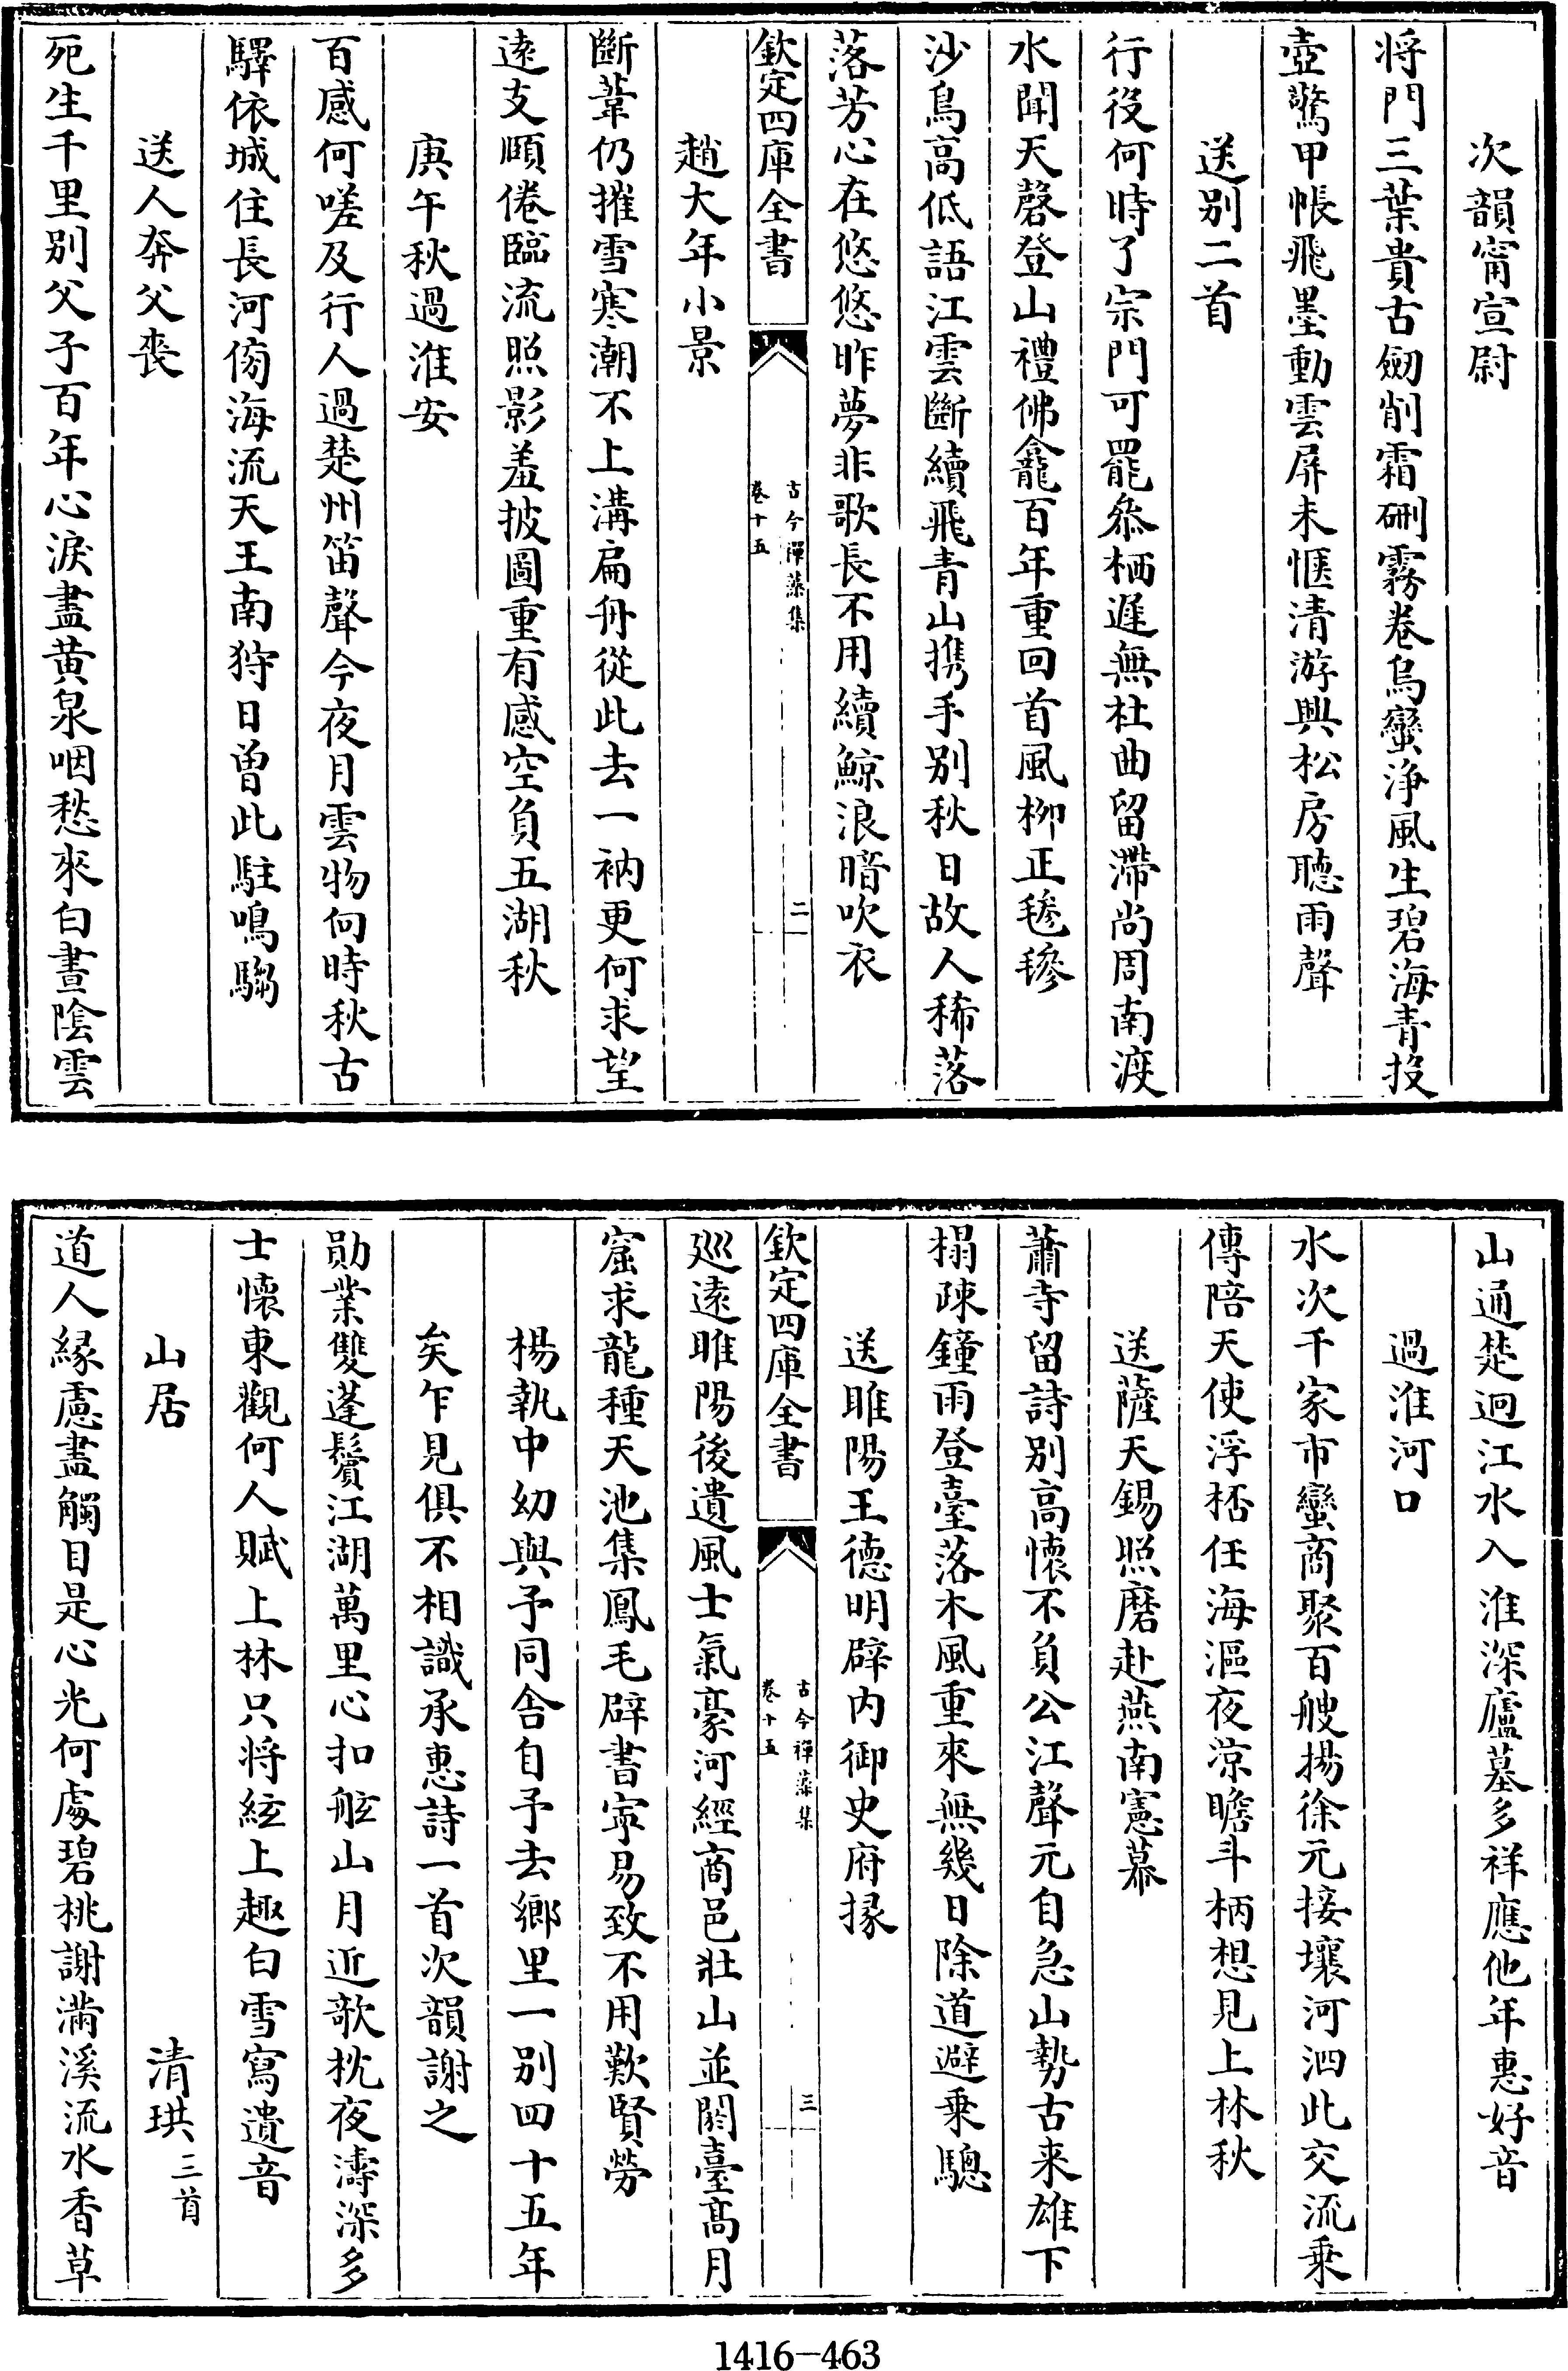 次韻甯宣尉
将門三葉貴古劒削霜硎霧卷烏蠻浄風生碧海青投
壺驚甲帳飛墨動雲屏未愜清游興松房聽雨聲
送别二首
行役何時了宗門可罷叅栖遲無杜曲留滯尚周南渡
水聞天磬登山禮佛龕百年重回首風栁正毿毿
沙鳥高低語江雲斷續飛青山携手别秋日故人稀落
落芳心在悠悠昨夢非歌長不用續鯨浪暗吹衣
欽定四庫全書
古今禪藻集
卷十五
二
趙大年小景
斷葦仍摧雪寒潮不上溝扁舟從此去一衲更何求望
逺支頤倦臨流照影羞披圖重有感空負五湖秋
庚午秋過淮安
百感何嗟及行人過楚州笛聲今夜月雲物何時秋古
驛依城住長河傍海流天王南狩日曽此駐鳴騶
送人奔父喪
死生千里别父子百年心淚盡黄泉咽愁來白晝隂雲
山通楚逈江水入淮深廬墓多祥應他年惠好音
過淮河口
水次千家市蠻商聚百艘揚徐元接壤河泗此交流乗
傳陪天使浮桮任海漚夜涼瞻斗柄想見上林秋
送薩天錫照磨赴燕南憲幕
蕭寺留詩别高懷不負公江聲元自急山勢古来雄下
榻疎鐘雨登臺落木風重來無幾日除道避乗驄
送睢陽王德明辟内御史府掾
欽定四庫全書
古今禪藻集
卷十五
三
廵逺睢陽後遺風士氣豪河經商邑壯山並閼臺髙月
窟求龍種天池集鳳毛辟書寜易致不用歎賢勞
楊執中幼與予同舍自予去鄉里一别四十五年
矣乍見俱不相識承惠詩一首次韻謝之
勛業雙蓬鬢江湖萬里心扣舷山月近欹枕夜濤深多
士懷東觀何人賦上林只将絃上趣白雪寫遺音
山居
清珙三首
道人縁慮盡觸目是心光何處碧桃謝滿溪流水香草
1416-463